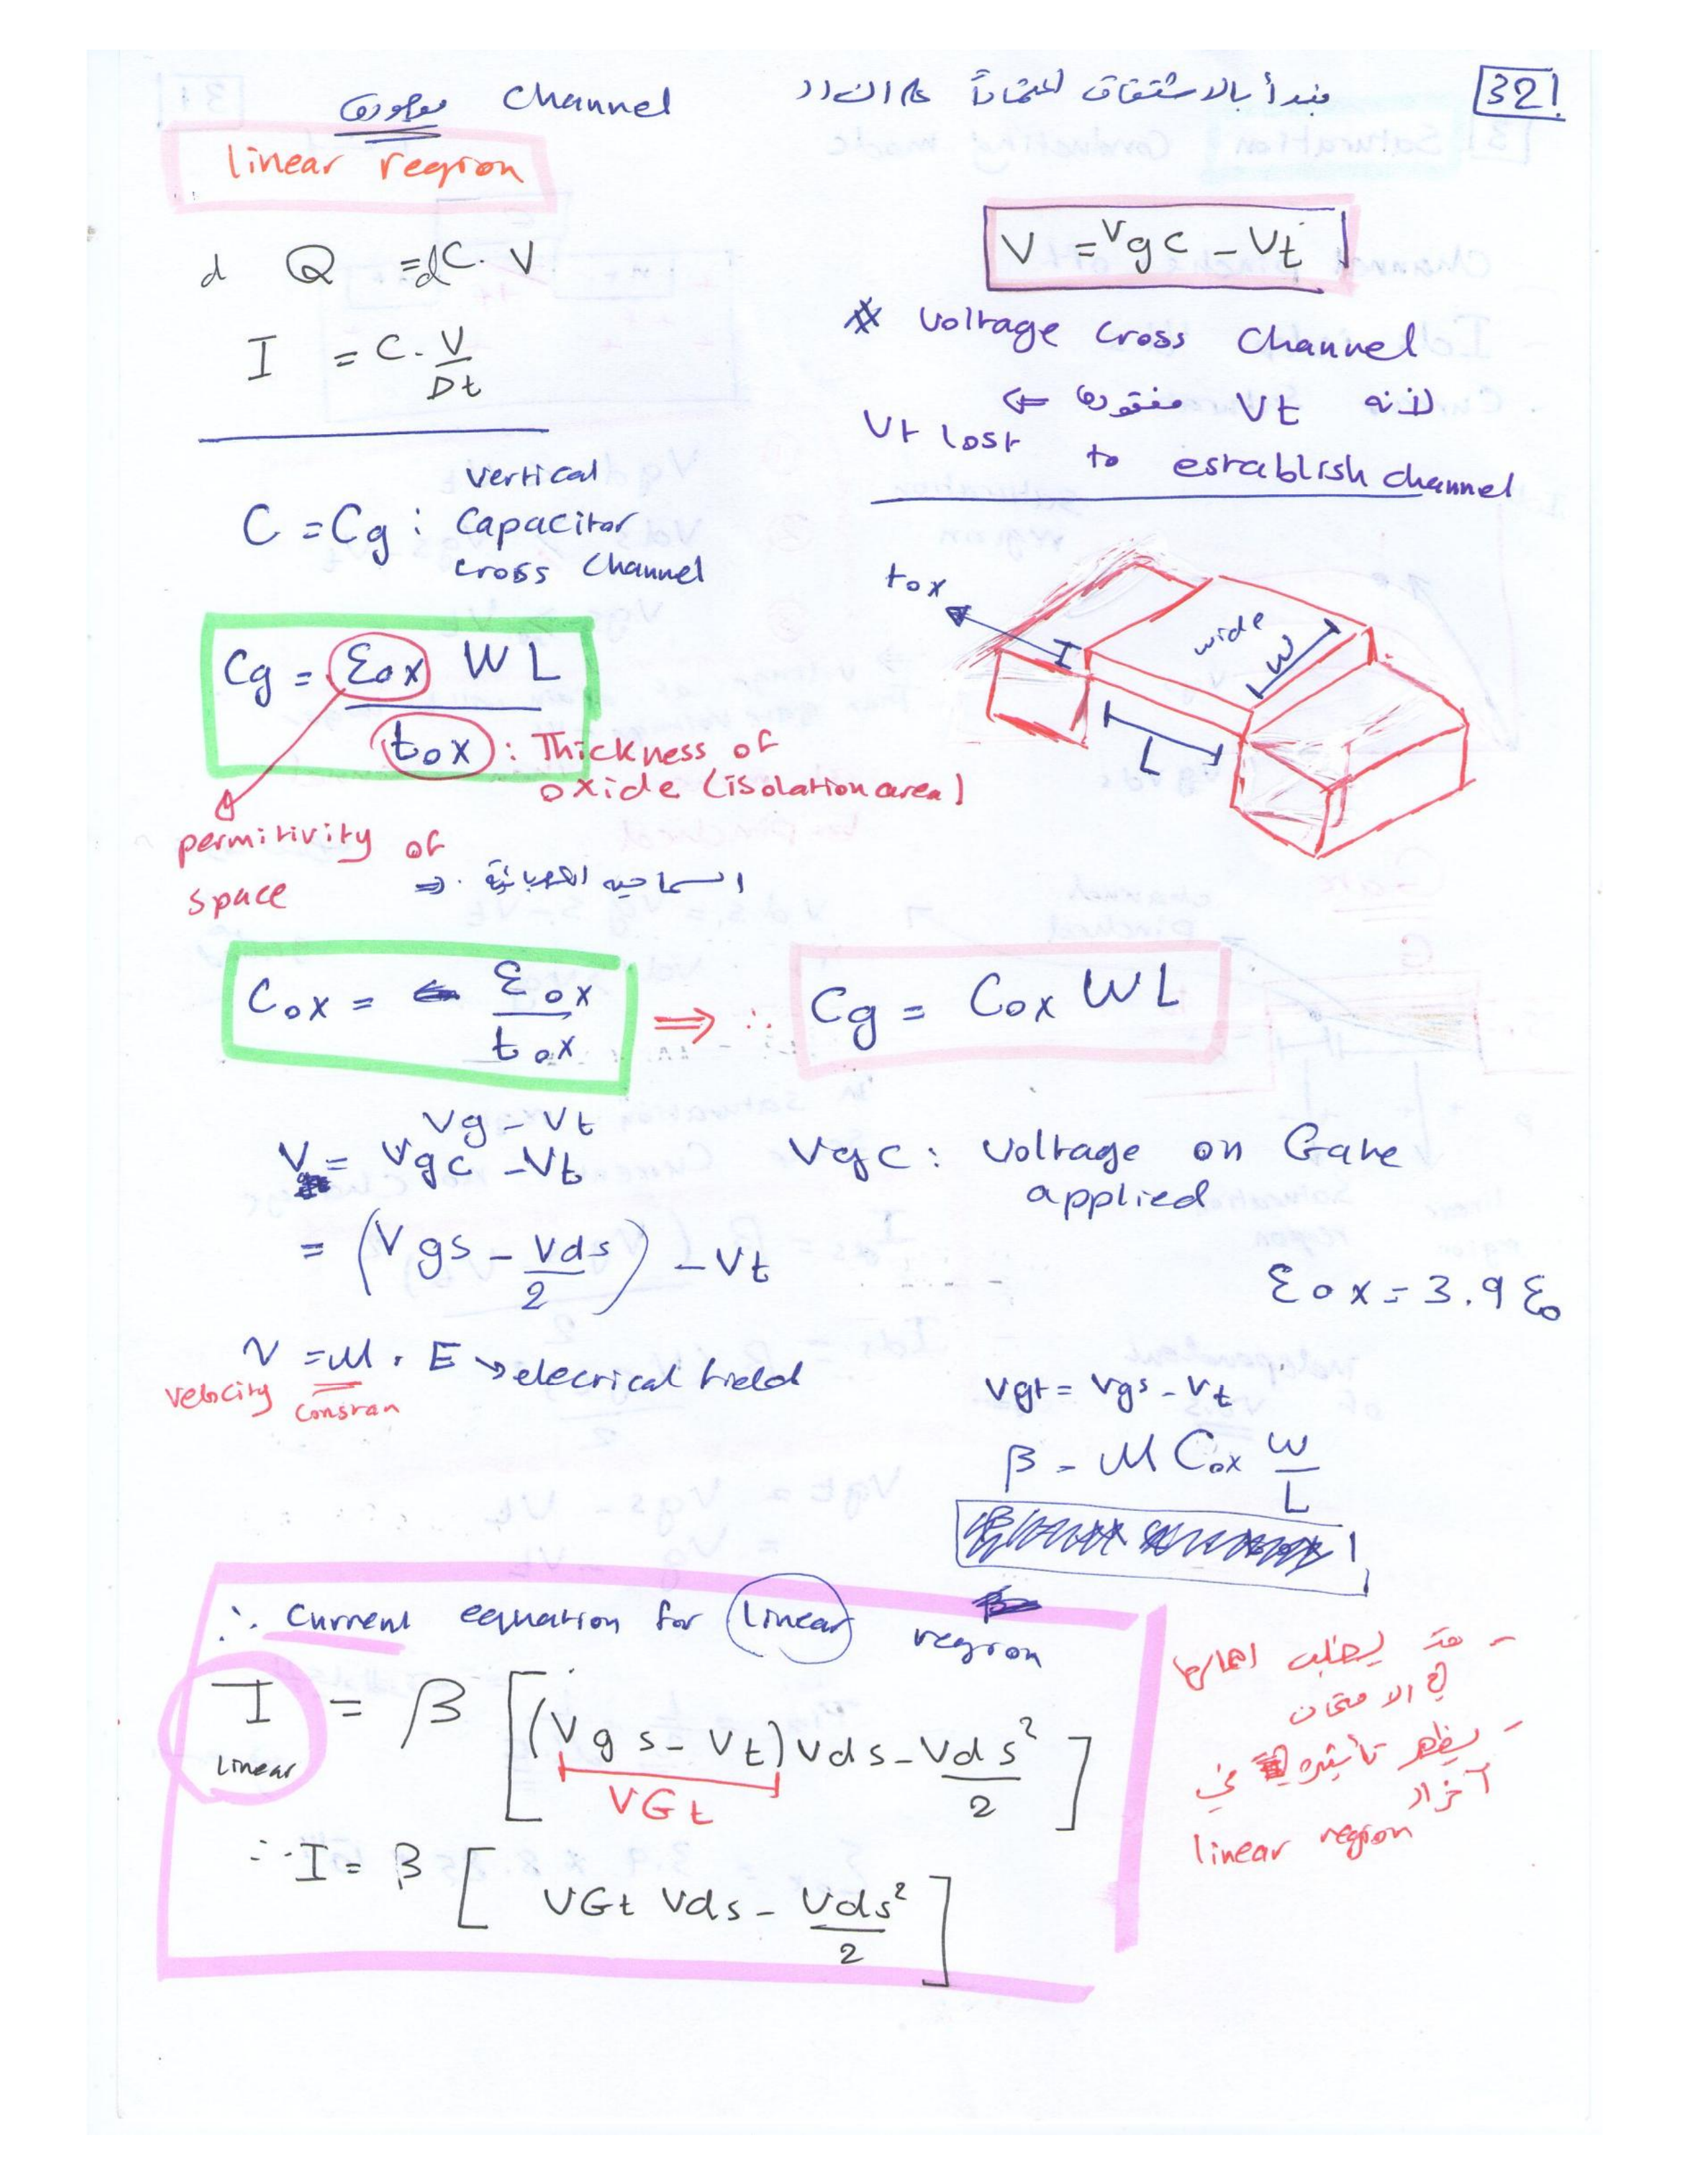 32
نبدأ بالاشتقاق اعتماداً على ان
channel موجودة
linear region
d Q = dC. V
I = C. V / Dt
V = Vgc - Vt
* Voltage cross channel
لانه Vt مفقودة ⇐
Vt lost to establish channel
C = Cg : vertical
capacitor
cross channel
tox
wide
W
L
Cg = εox W L / tox
: Thickness of
oxide (isolation area)
permitivity of
space
⇒ السماحيه الكهربائية
Cox = εox / tox ⇒ ∴ Cg = Cox WL
Vg - Vt
V = Vgc - Vt
Vgc : Voltage on Gate
applied
= (Vgs - Vds/2) - Vt
εox = 3.9 ε₀
V = M . E → elecrical field
velocity constan
Vgt = Vgs - Vt
β = M Cox W/L
∴ Current equation for linear region
I linear = β [(Vgs - Vt) Vds - Vds²/2]
VGt
∴ I = β [VGt Vds - Vds²/2]
- قد يطلب اهمالها
في الامتحان
- يظهر تأثيره في
آخر ال
linear region